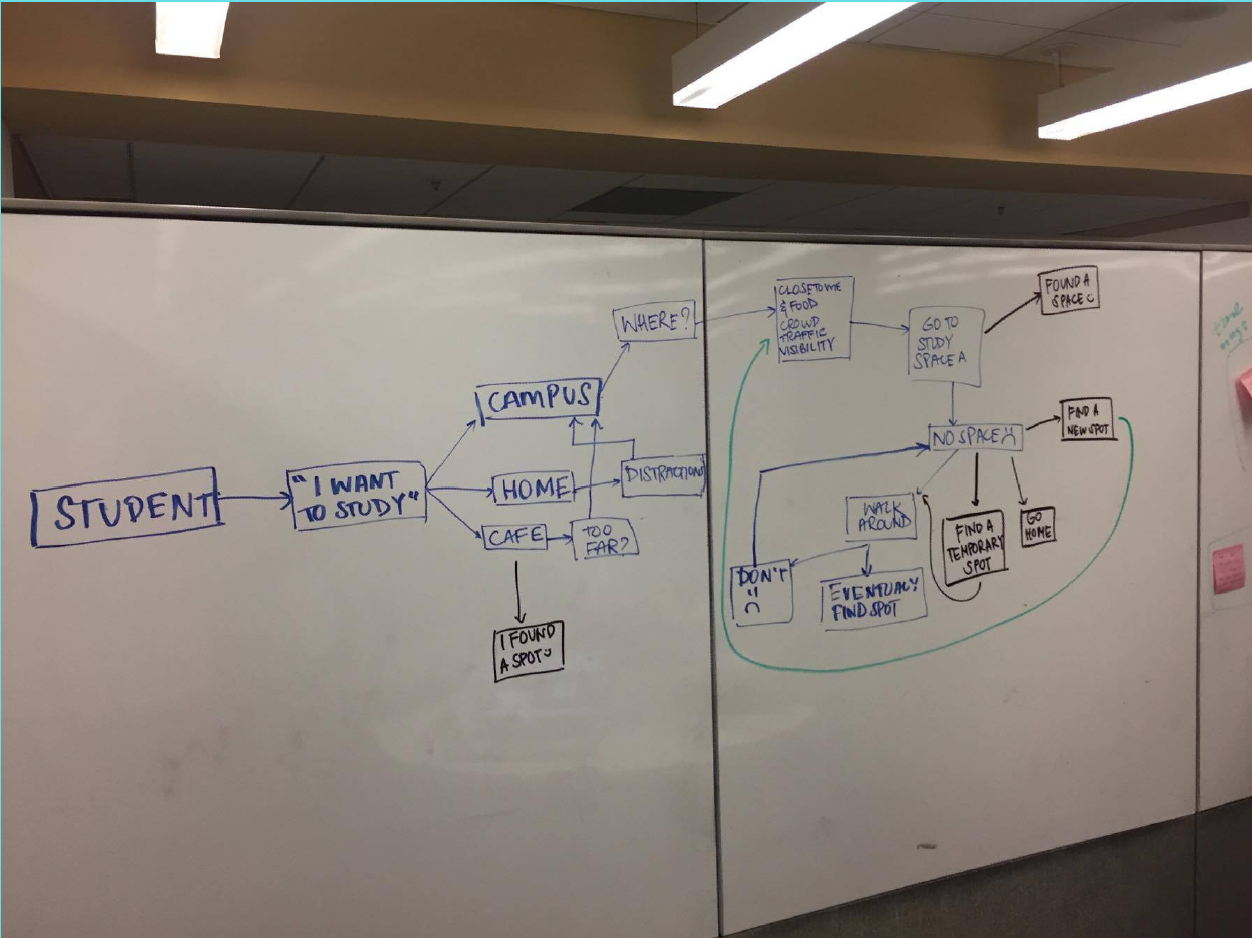 STUDENT
"I WANT
TO STUDY"
CAMPUS
HOME
CAFE
TOO
FAR?
DISTRACTIONS
I FOUND
A SPOT
WHERE?
CLOSE TO ME
& FOOD
CROWD
TRAFFIC
VISIBILITY
GO TO
STUDY
SPACE A
FOUND A
SPACE
NO SPACE
FIND A
NEW SPOT
WALK
AROUND
FIND A
TEMPORARY
SPOT
GO
HOME
DON'T
EVENTUALY
FIND SPOT
time